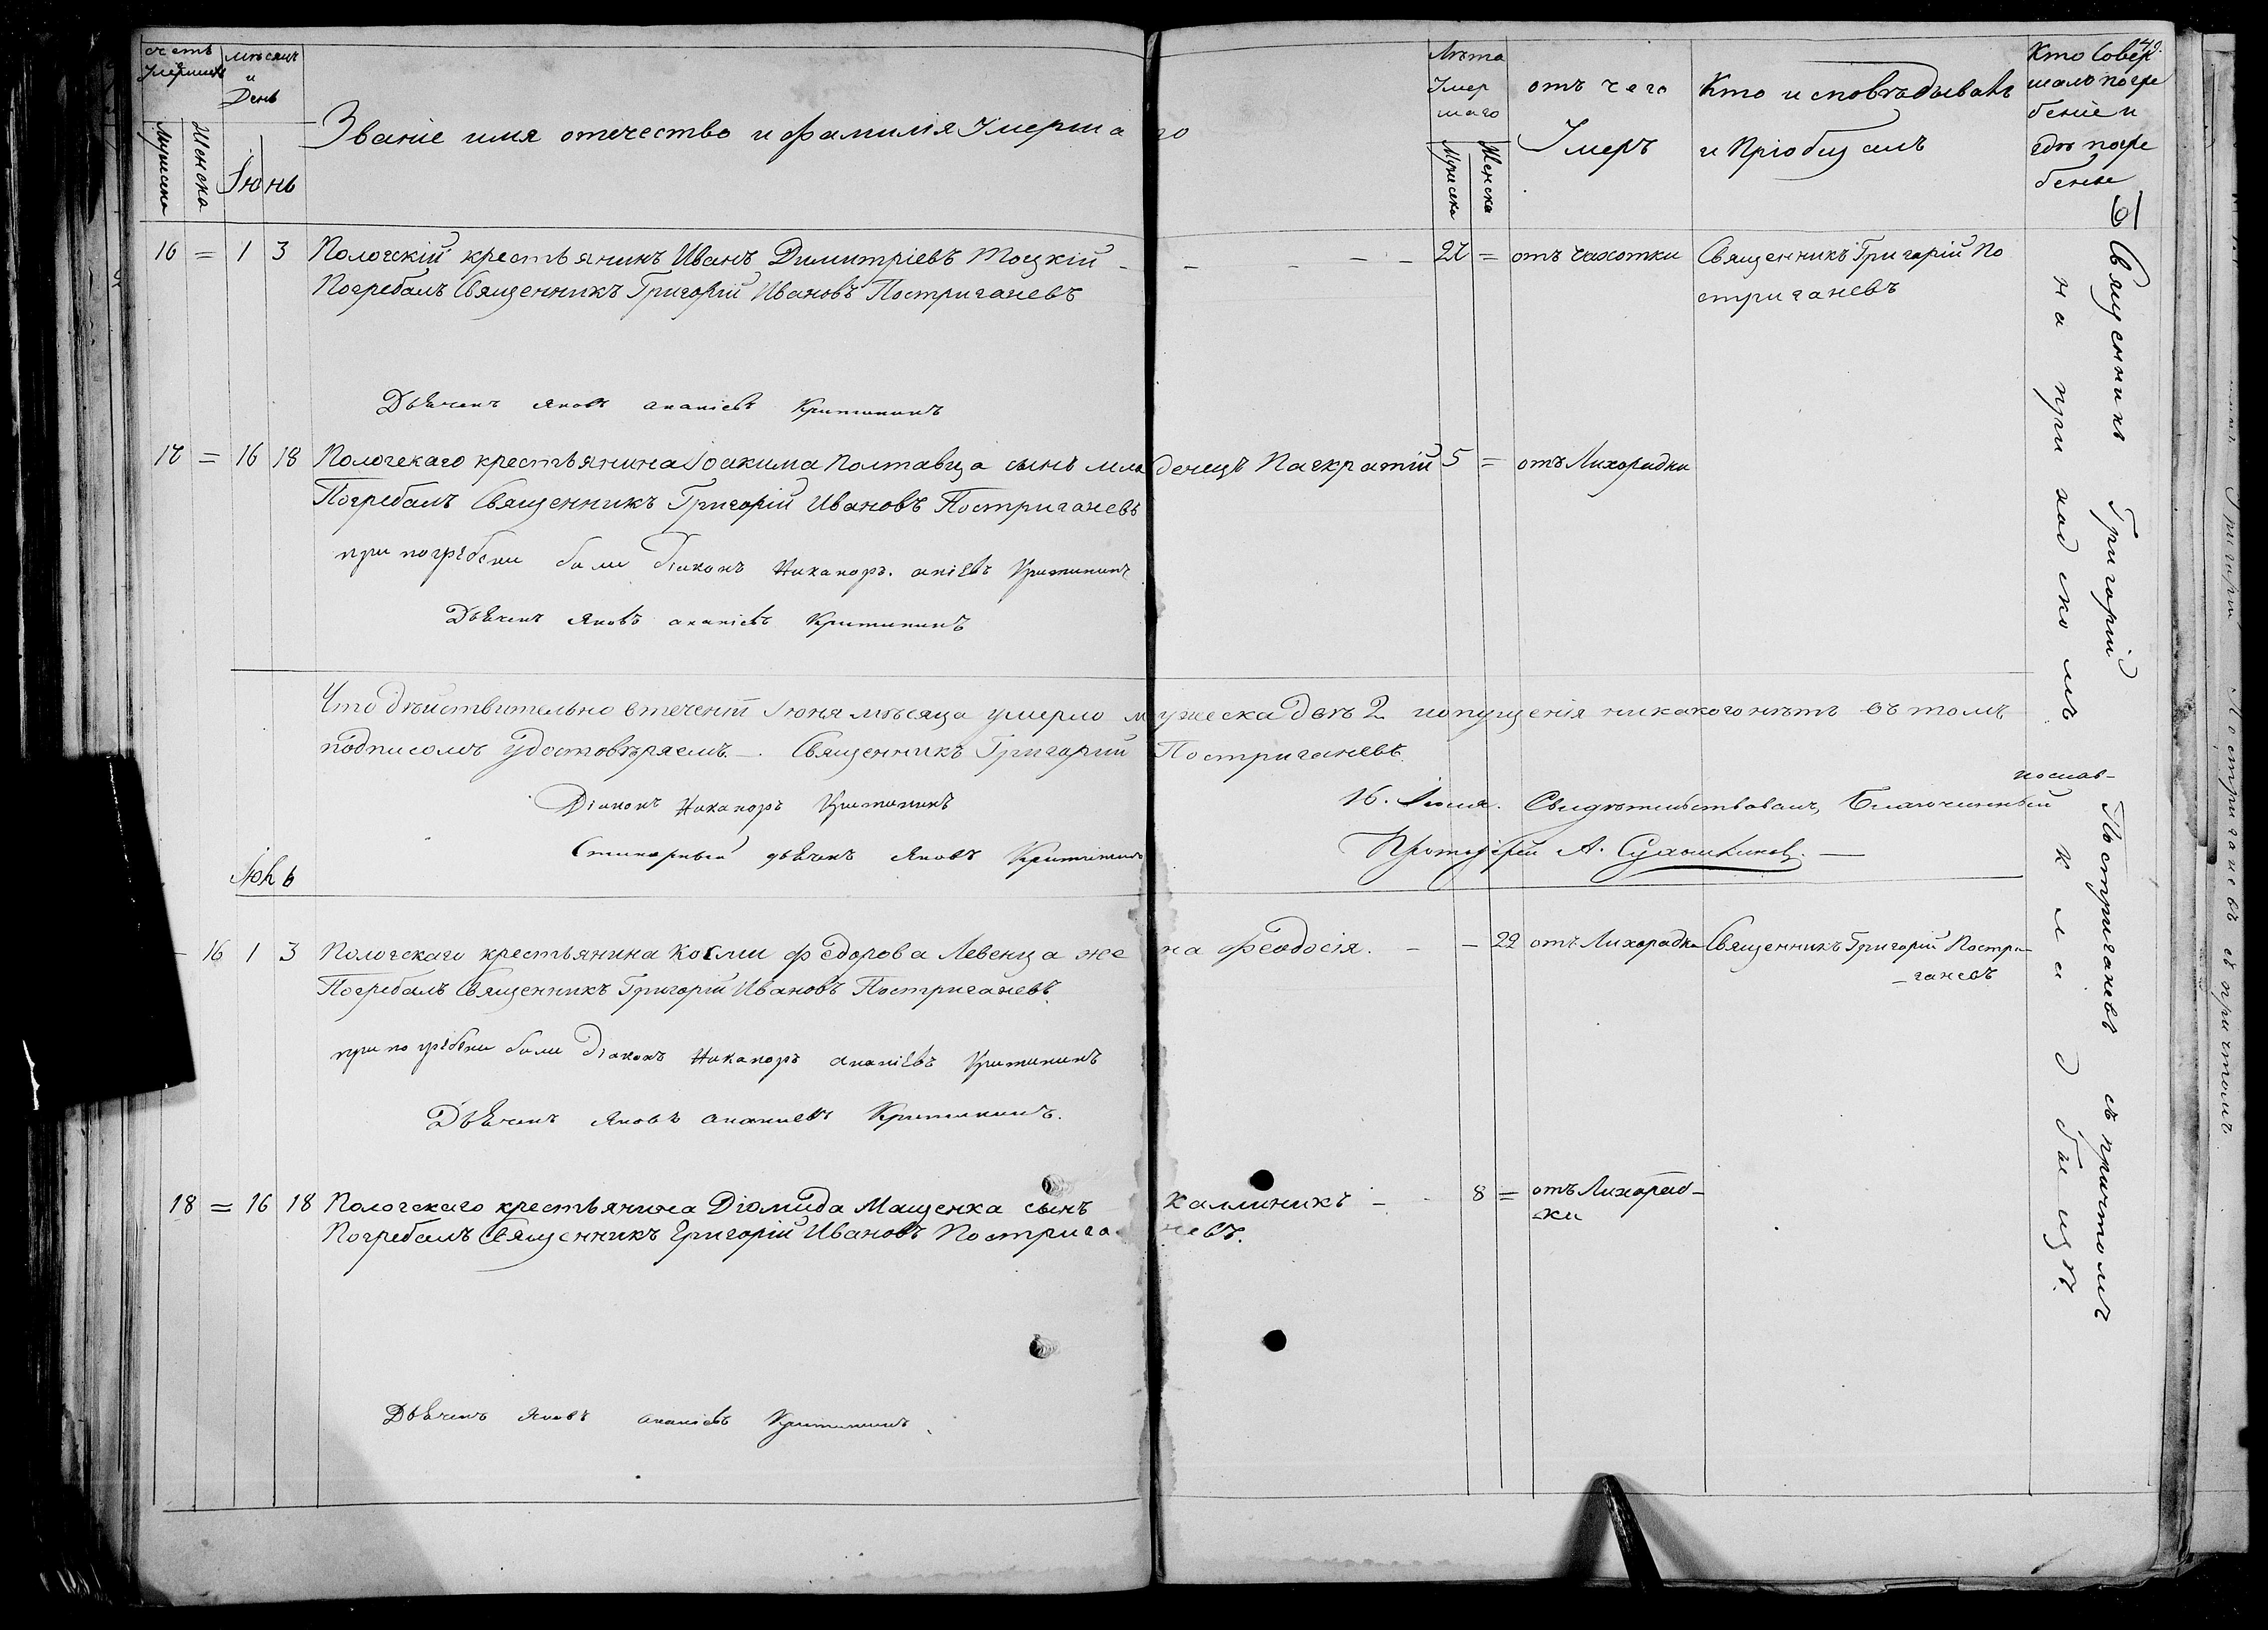 счетъ умершихъ
мѣсяцъ и День
Званіе имя отечество и фамилія Умершаго
Лѣта Умершаго
отъ чего Умеръ
Кто исповѣдывалъ и Пріобщалъ
Кто Совершалъ погребеніе и гдѣ погребены
49.
Мужеска
Женска
Іюнь
Мужеска
Женска
16 = 1 3 Пологскій крестьянинъ Иванъ Димитріевъ Тоцкій - - - - - 27 = отъ чахотки Священникъ Григорій По
Погребалъ Священникъ Григорій Ивановъ Постриганевъ стриганевъ
Дьячекъ Яковъ ананіевъ Критининъ
17 = 16 18 Пологскаго крестьянина Іоакима Полтавца сынъ младенецъ Пагкратій 5 = отъ Лихорадки
Погребалъ Священникъ Григорій Ивановъ Постриганевъ
при погребени были діаконъ Никаноръ. Критининъ
Дьячекъ Яковъ ананіевъ Критининъ
Что дѣйствительно втеченіи Іюня мѣсяца умерло мужеска двѣ 2 ипопущенія никакого нѣтъ въ томъ
подписомъ Удостовѣряемъ. — Священникъ Григорий Постриганевъ.
Діаконъ Никаноръ Критининъ
16. Іюля. Свидѣтельствовалъ, Благочинный
дьячекъ Яковъ Критининъ
Протоіерей А.
Іюль
- 16 1 3 Пологскаго крестьянина Космы Федорова Левенца жена Феодосія. - - 22 отъ Лихорадки Священникъ Григорій Постри-
Погребалъ Священникъ Григорій Ивановъ Постриганевъ. - ганевъ
при погребени были Діаконъ Никаноръ ананіевъ Критининъ
Дьячекъ Яковъ ананиевъ Критининъ.
18 = 16 18 Пологскаго крестьянина Діомида Мащенка сынъ Каллиникъ - - 8 = отъ Лихорад-
Погребалъ Священникъ Григорій Ивановъ Постриганевъ. -ки
Дьячекъ Яковъ ананіевъ Критининъ.
Священникъ Григорій Постриганевъ съ причтомъ
на приходскомъ кладбищѣ.